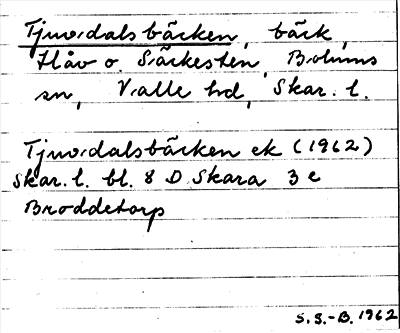 Tjuvdalsbäcken, bäck,
Håv o. Särkesten, Bolums
sn, Valle hd, Skar. l.
Tjuvdalsbäcken ek (1962)
Skar. l. bl. 8 D Skara 3 e
Broddetorp
S.S.-B. 1962